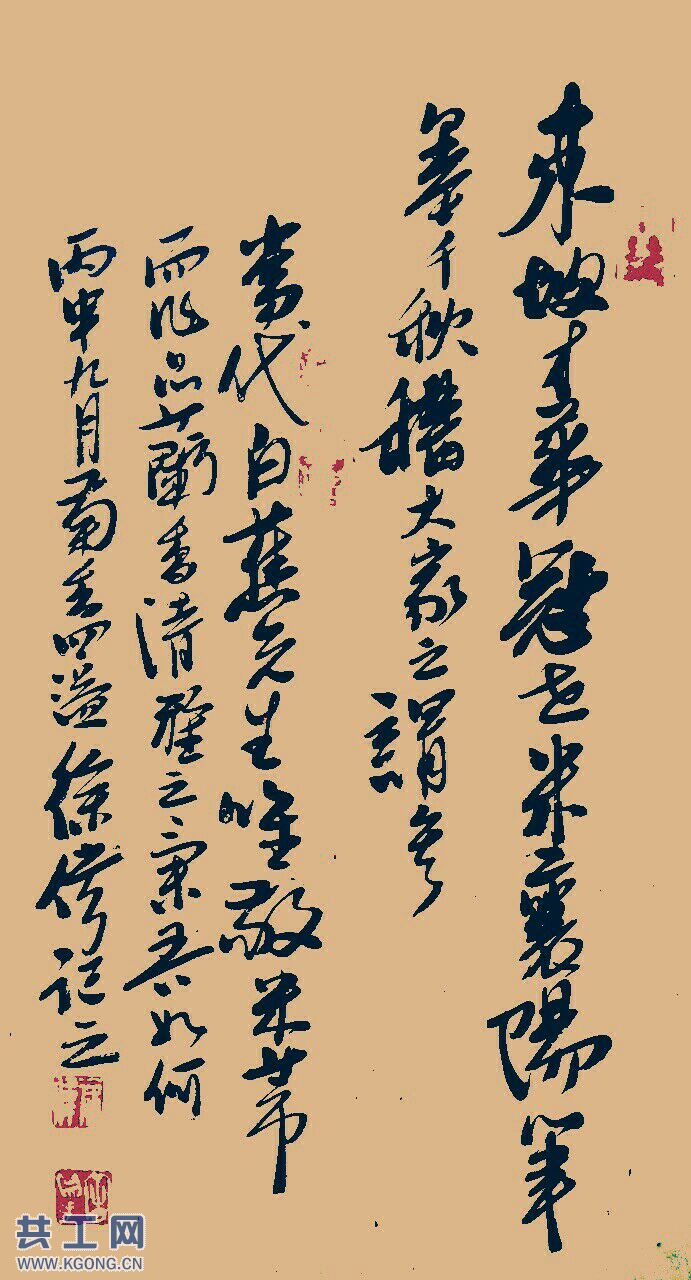 東坡才華冠世米襄陽筆
墨千秋 大家之謂矣
當代白蕉先生唯敬米芾
而 品蘭香清雅之 如何
丙申九月菊香四溢徐 记之
共工网
WWW.KGONG.CN